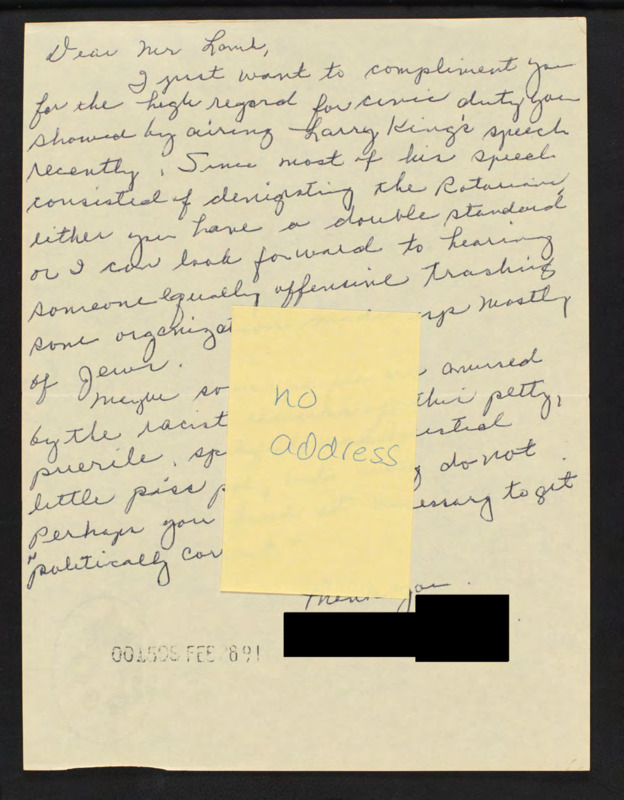 Dear Mr Lamb,
I just want to compliment you
for the high regard for civic duty you
showed by airing Larry King's speech
recently. Since most of his speech
consisted of denigrating the Rotarians,
either you have a double standard
or I can look forward to hearing
someone equally offensive trashing
some organizat mostly
of Jews.
Maybe so amused
by the racist this petty,
puerile, sp
little piss p do not.
Perhaps you essary to get
"politically cor
Thank you.
no
address
001505 FEB 26 91